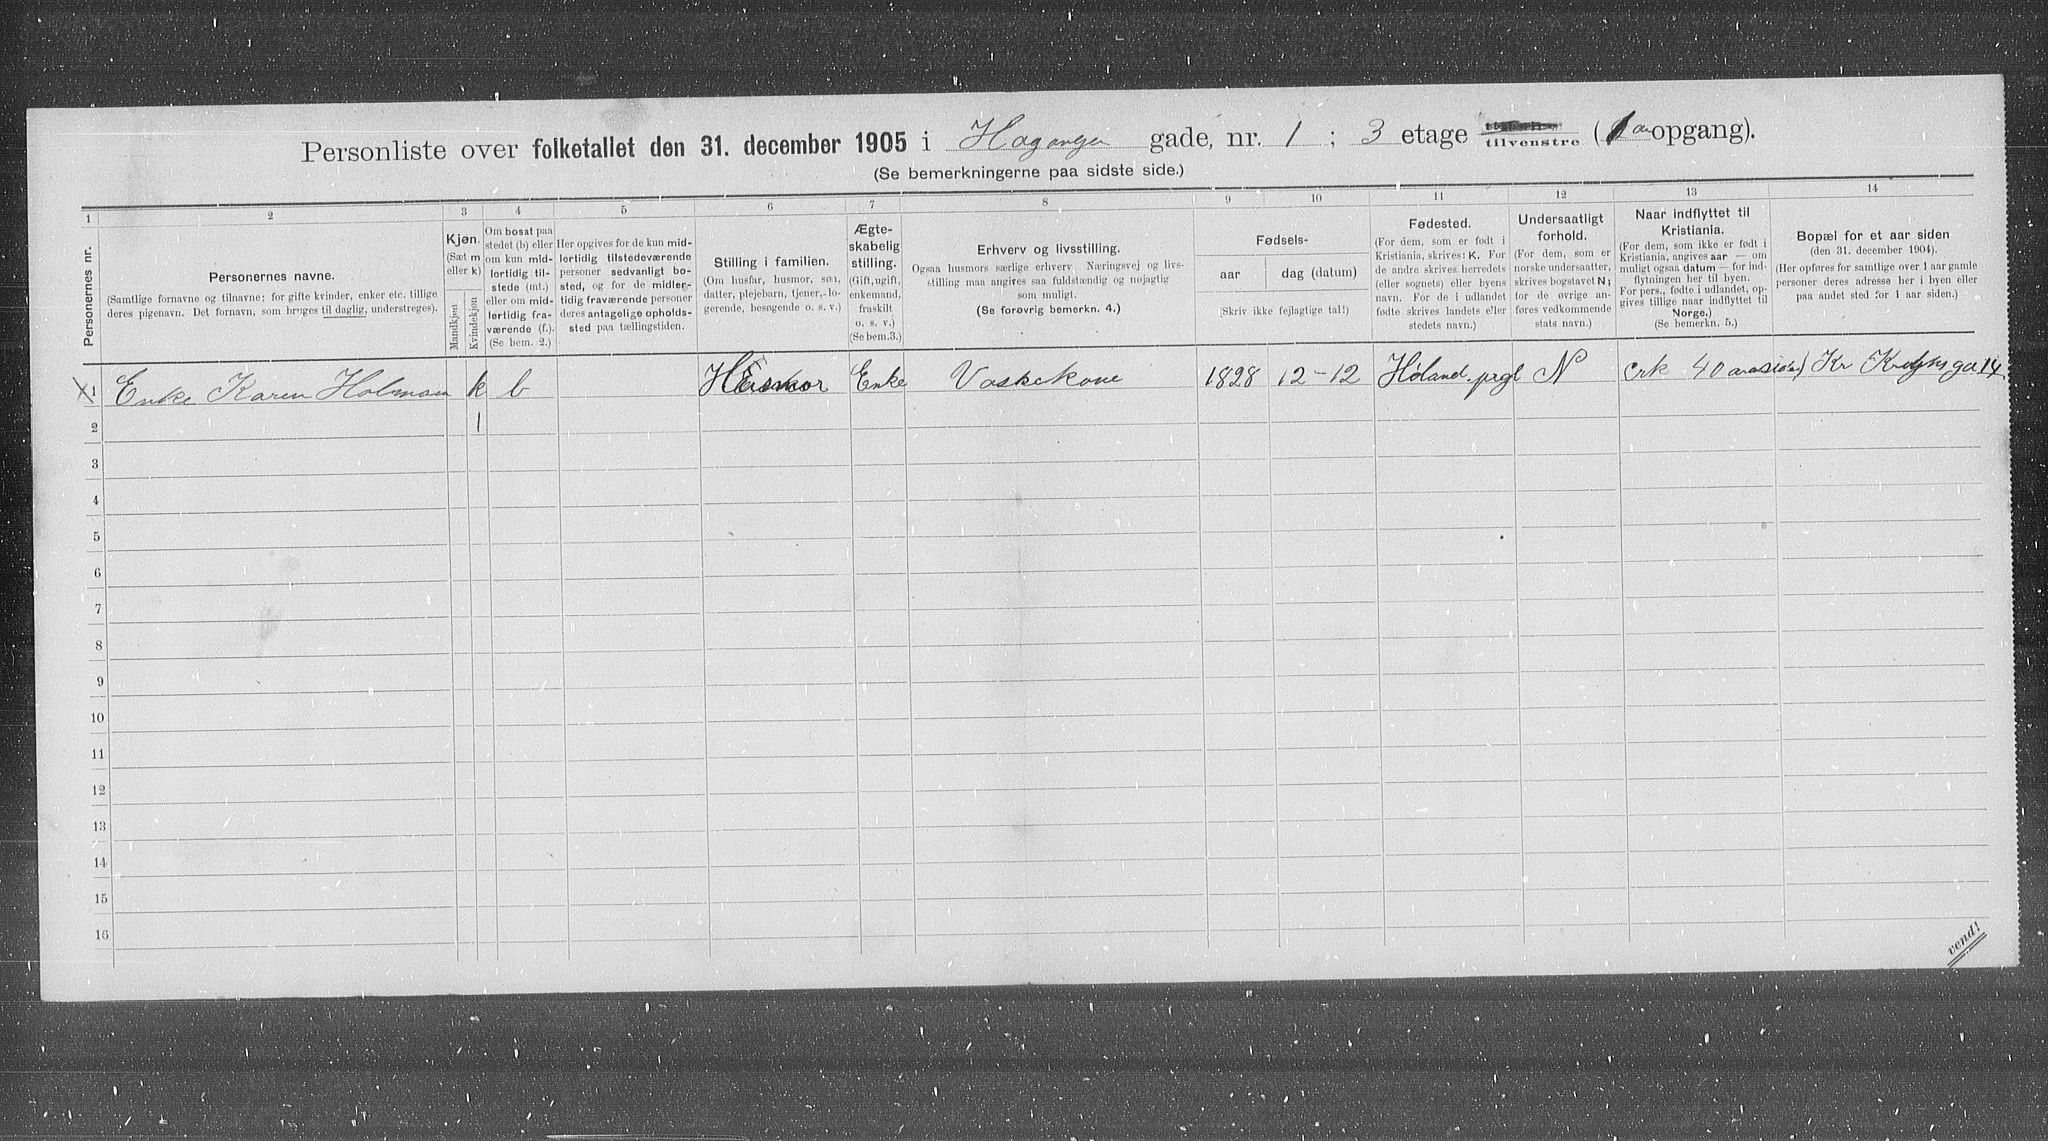 Personliste over folketallet den 31. december 1905 i gade, nr. 1 ; 3 etage tilvenstre ( opgang).
(Se bemerkningerne paa sidste side.)
1 2 3 4 5 6 7 8 9 10 11 12 13 14
Personernes nr.
Personernes navne.
(Samtlige fornavne og tilnavne; for gifte kvinder, enker etc. tillige
deres pigenavn. Det fornavn, som bruges til daglig, understreges).
Kjøn.
(Sæt m
eller k)
Mandkjøn
Kvindekjøn
Om bosat paa
stedet (b) eller
om kun mid-
lertidig til-
stede (mt.)
eller om mid-
lertidig fra-
værende (f.).
(Se bem. 2.)
Her opgives for de kun mid-
lertidig tilstedeværende
personer sedvanligt bo-
sted, og for de midler-
tidig fraværende personer
deres antagelige opholds-
sted paa tællingstiden.
Stilling i familien.
(Om husfar, husmor, søn,
datter, plejebarn, tjener, lo-
gerende, besøgende o. s. v.)
Ægte-
skabelig
stilling.
(Gift, ugift,
enkemand,
fraskilt
o. s. v.)
(Se bem.3.)
Erhverv og livsstilling.
Ogsaa husmors særlige erhverv. Næringsvej og livs-
stilling maa angives saa fuldstændig og nøjagtig
som muligt.
(Se forøvrig bemerkn. 4.)
Fødsels-
aar dag (datum)
(Skriv ikke fejlagtige tal!)
Fødested.
(For dem, som er født i
Kristiania, skrives: K. For
de andre skrives herredets
(eller sognets) eller byens
navn. For de i udlandet
fødte skrives landets eller
stedets navn.)
Undersaatligt
forhold.
(For dem, som er
norske undersaatter,
skrives bogstavet N;
for de øvrige an-
føres vedkommende
stats navn.)
Naar indflyttet til
Kristiania.
(For dem, som ikke er født i
Kristiania, angives aar — om
muligt ogsaa datum — for ind-
flytningen her til byen.
For pers., fødte i udlandet, op-
gives tillige naar indflyttet til
Norge.)
(Se bemerkn. 5.)
Bopæl for et aar siden
(den 31. december 1904).
(Her opføres for samtlige over 1 aar gamle
personer deres adresse her i byen eller
paa andet sted for 1 aar siden.)
1 Enke Karen Holmsen k b Enke Vaskekone 1828 12-12 Høland prgl N crk 40 aar siden Kr
2 1
3
4
5
6
7
8
9
10
11
12
13
14
15
16
vend!